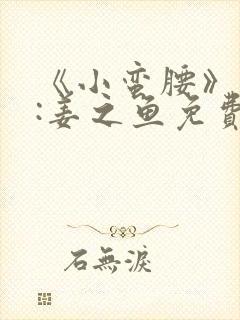 《小蛮腰》
:姜之鱼免費
石無淚